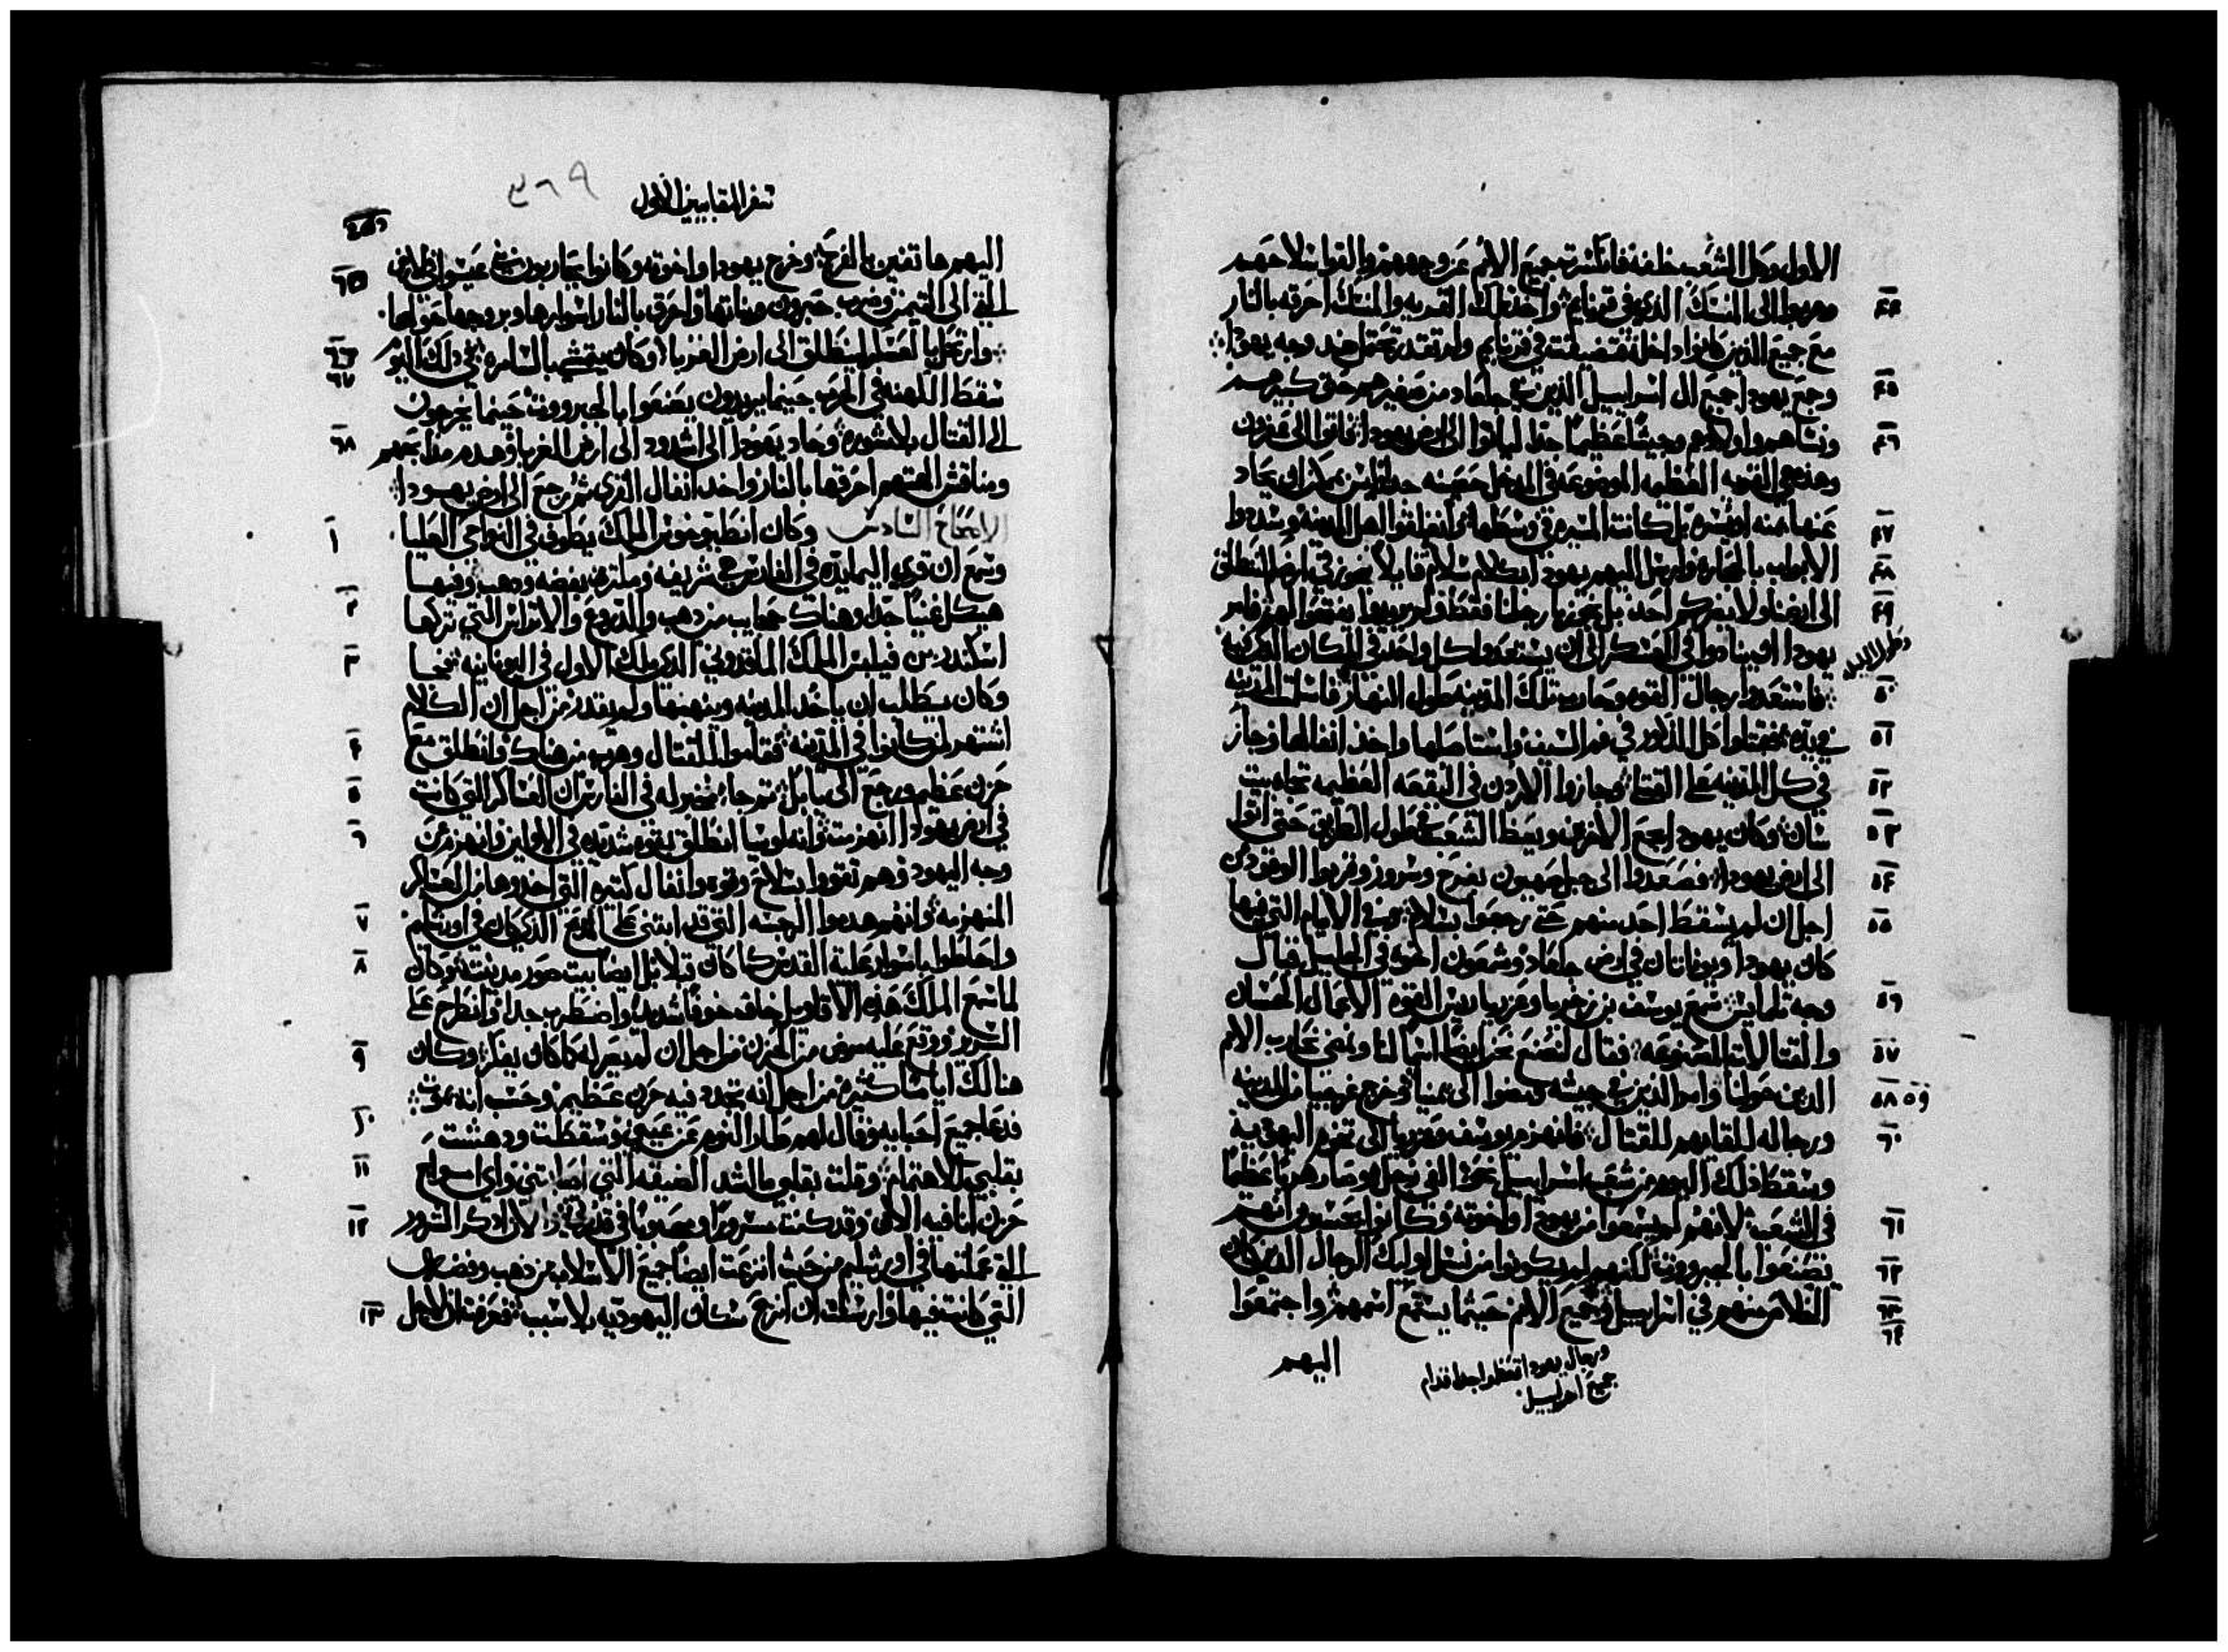 الاول وكل الشعب خلفه فانكسرت جميع الامم عن وجههم والقوا سلاحهم
وهربوا الى المنسك الذي في قرنايم واخذ تلك القريه والمنسك احرقه بالنار
٤٤
مع جميع الذين كانوا داخله فتضيقت قرنايم ولم تقدر تحتمل ضد وجه يهودا
وجمع يهودا جميع ال اسراييل الذين في جلعاد من صغيرهم حتى كبيرهم
٤٥
ونساهم واولادهم وجيشًا عظيمًا جدا لياتوا الى ارض يهودا فاتوا الى عفرون
٤٦
وهذه هي القريه العظيمه الموضوعه في المدخل حصينه جدا
عنها يمنه او يسره بل كانت المسيره في وسطها فاغلقوا اهل المدينه وسدوا
٤٧
الابواب بالحجاره وارسل اليهم يهودا بكلام سلام قايلا نجوز في ارضكم لننطلق
٤٨
الى ارضنا ولا يضركم احد بل نجوز بارجلنا فقط ولم يريدوا يفتحوا لهم فامر
٤٩
يهودا ان ينادوا في العسكر الى ان يستعدوا كل واحد في المكان الذي فيه
فاستعدوا رجال القوه وحارب تلك المدينه طول النهار
٥٠
في يده فقتلوا كل الذكور في فم السيف واستاصلها واخذ انفالها وجاز
٥١
في كل المدينه على القتلى وجازوا الاردن في البقعه العظيمه تجاه بيت
٥٢
شان وكان يهودا يجمع الاخرين ويعظ الشعب في طول الطريق حتى اتوا
٥٣
الى ارض يهودا فصعدوا الى جبل صهيون بفرح وسرور وقربوا الوقود من
٥٤
اجل ان لم يسقط احد منهم حتى رجعوا بسلام وفي الايام التي فيها
٥٥
كان يهودا ويوناتان في ارض جلعاد وشمعون اخوه في الجليل قبال
وجه تلمايس سمع يوسف بن زخريا وعزريا ريس القوه الاعمال الحسان
٥٦
والقتالات المصنوعه فقال لنصنع نحن ايضًا اسمًا لنا ونمضي نحارب الامم
٥٧
الذين حولنا وامر الذين في جيشه ومضوا الى يمنيا وخرج غرجيا من المدينه
٥٨ ٥٩
ورجاله للقايهم للقتال فانهزم يوسف وعزريا الى تخوم اليهوديه
٦٠
وسقط ذلك اليوم من شعب اسراييل نحو الفي رجل وصار هربًا عظيمًا
في الشعب لانهم لم يسمعوا من يهودا واخوته وكانوا يحسبون انهم
٦١
يصنعوا بالجبروت لكنهم لم يكونوا من نسل اوليك الرجال الذين كان
٦٢
الخلاص منهم في اسراييل وجميع الامم حيثما يستمع اسمهم واجتمعوا
٦٣
٦٤
ورجال يهودا تعظموا جدا قدام
جميع اسراييل
اليهم
سفر المقابيين الاول
٣٦٩
اليهم هاتفين بالفرح وخرج يهودا واخوته وكانوا يحاربون بني عيسو في الارض
٦٥
التي الى التيمن وضرب حبرون وبناتها واحرق بالنار اسوارها وبروجها حولها
وارتحل بالعسكر لينطلق الى ارض الغربا وكان يتمشى بالسامره في ذلك اليوم
٦٦
٦٧
سقط الكهنه في الحرب حينما يريدون يصنعوا بالجبروت حينما يخرجون
الى القتال بلا مشوره وحاد يهودا الى اشدود الى ارض الغربا وهدم مذابحهم
٦٨
ومناقش الهتهم احرقها بالنار واخذ انفال القرى ثم رجع الى ارض يهودا
الاصحاح السادس وكان انطيوخوس الملك يطوف في النواحي العليا
١
وسمع ان قرية اليمايده في الفارس هي شريفه وملتزه بفضه وذهب وفيها
٢
هيكل غنيًا جدًا وهناك حجايب من ذهب والدروع والاتراس التي تركها
اسكندر بن فيلبس الملك الماقدوني الذي ملك الاول في اليونانيه فجا
٣
وكان يطلب ان ياخذ المدينه وينهبها ولم يقدر من اجل ان الكلام
اشتهر لمن كانوا في المدينه فقاموا للقتال وهرب من هناك وانطلق مع
٤
حزن عظيم ورجع الى بابل ثم جا مخبر له في الفارس ان العساكر التي كانت
٥
في ارض يهودا انهزمت وانه لوسيا انطلق بقوه شديده في الاولين وانهزم من
٦
وجه اليهود وهم تقووا بسلاح وقوه وانفال كثيره التي اخذوها من العساكر
المنهزمه وانهم هدموا الرجسه التي قد ابتنى على المذبح الذي كان في اورشليم
٧
واحاطوا باسوار عليه القدس كما كان قبلا بل ايضا بيت صور مدينته وكان
٨
لما سمع الملك هذه الاقاويل خاف خوفًا شديدًا واضطرب جدا وانطرح على
السرير ووقع عليه مرض من الحزن من اجل ان لم يصر له كما كان يفكر وكان
٩
هنالك ايامًا كثيره من اجل انه تجدد فيه حزن عظيم وحسب انه يموت
فدعا جميع احبايه وقال لهم طار النوم عن عيني وسقطت ودهشت
١٠
بقلبي للاهتمام وقلت بقلبي ما اشد الضيقه التي اصابتني واي امواج
١١
حزن انا فيه الان وقد كنت مسرورًا ومحبوبًا في قدرتي والان اذكر الشرور
١٢
التي عملتها في اورشليم من حيث انزعت ايضًا جميع الاسلاب من ذهب وفضه
التي كانت فيها وارسلت ان انزع سكان اليهوديه بلا سبب فعرفت ان لاجل
١٣